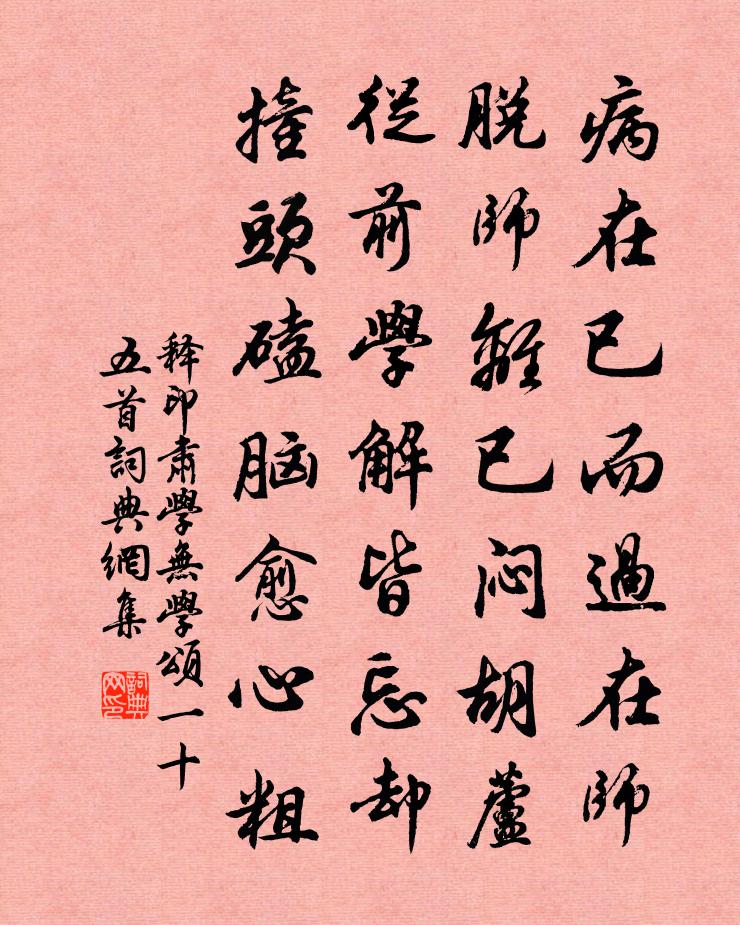 病在已而過在師
脱師離已闷胡蘆
從前學解皆忘却
撞頭磕脑愈心粗
释印肅學無學頌一十
五首詞典網集
詞典网印